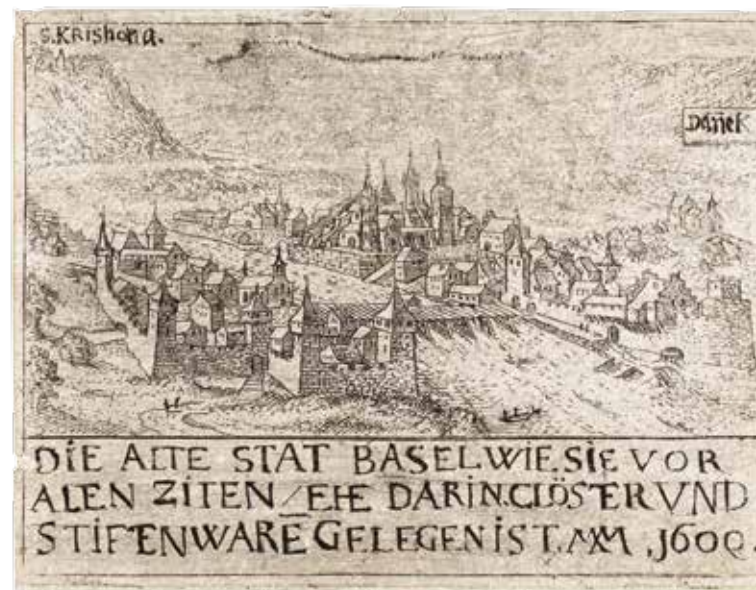 S. KRishona.
Dañek
DiE ALTE STAT BASEL WIE.SIE VOR
ALEN ZITEN /EHE DARIN.CLÖSTER VND
STIFENWARE GELEGEN iST.
.1600.